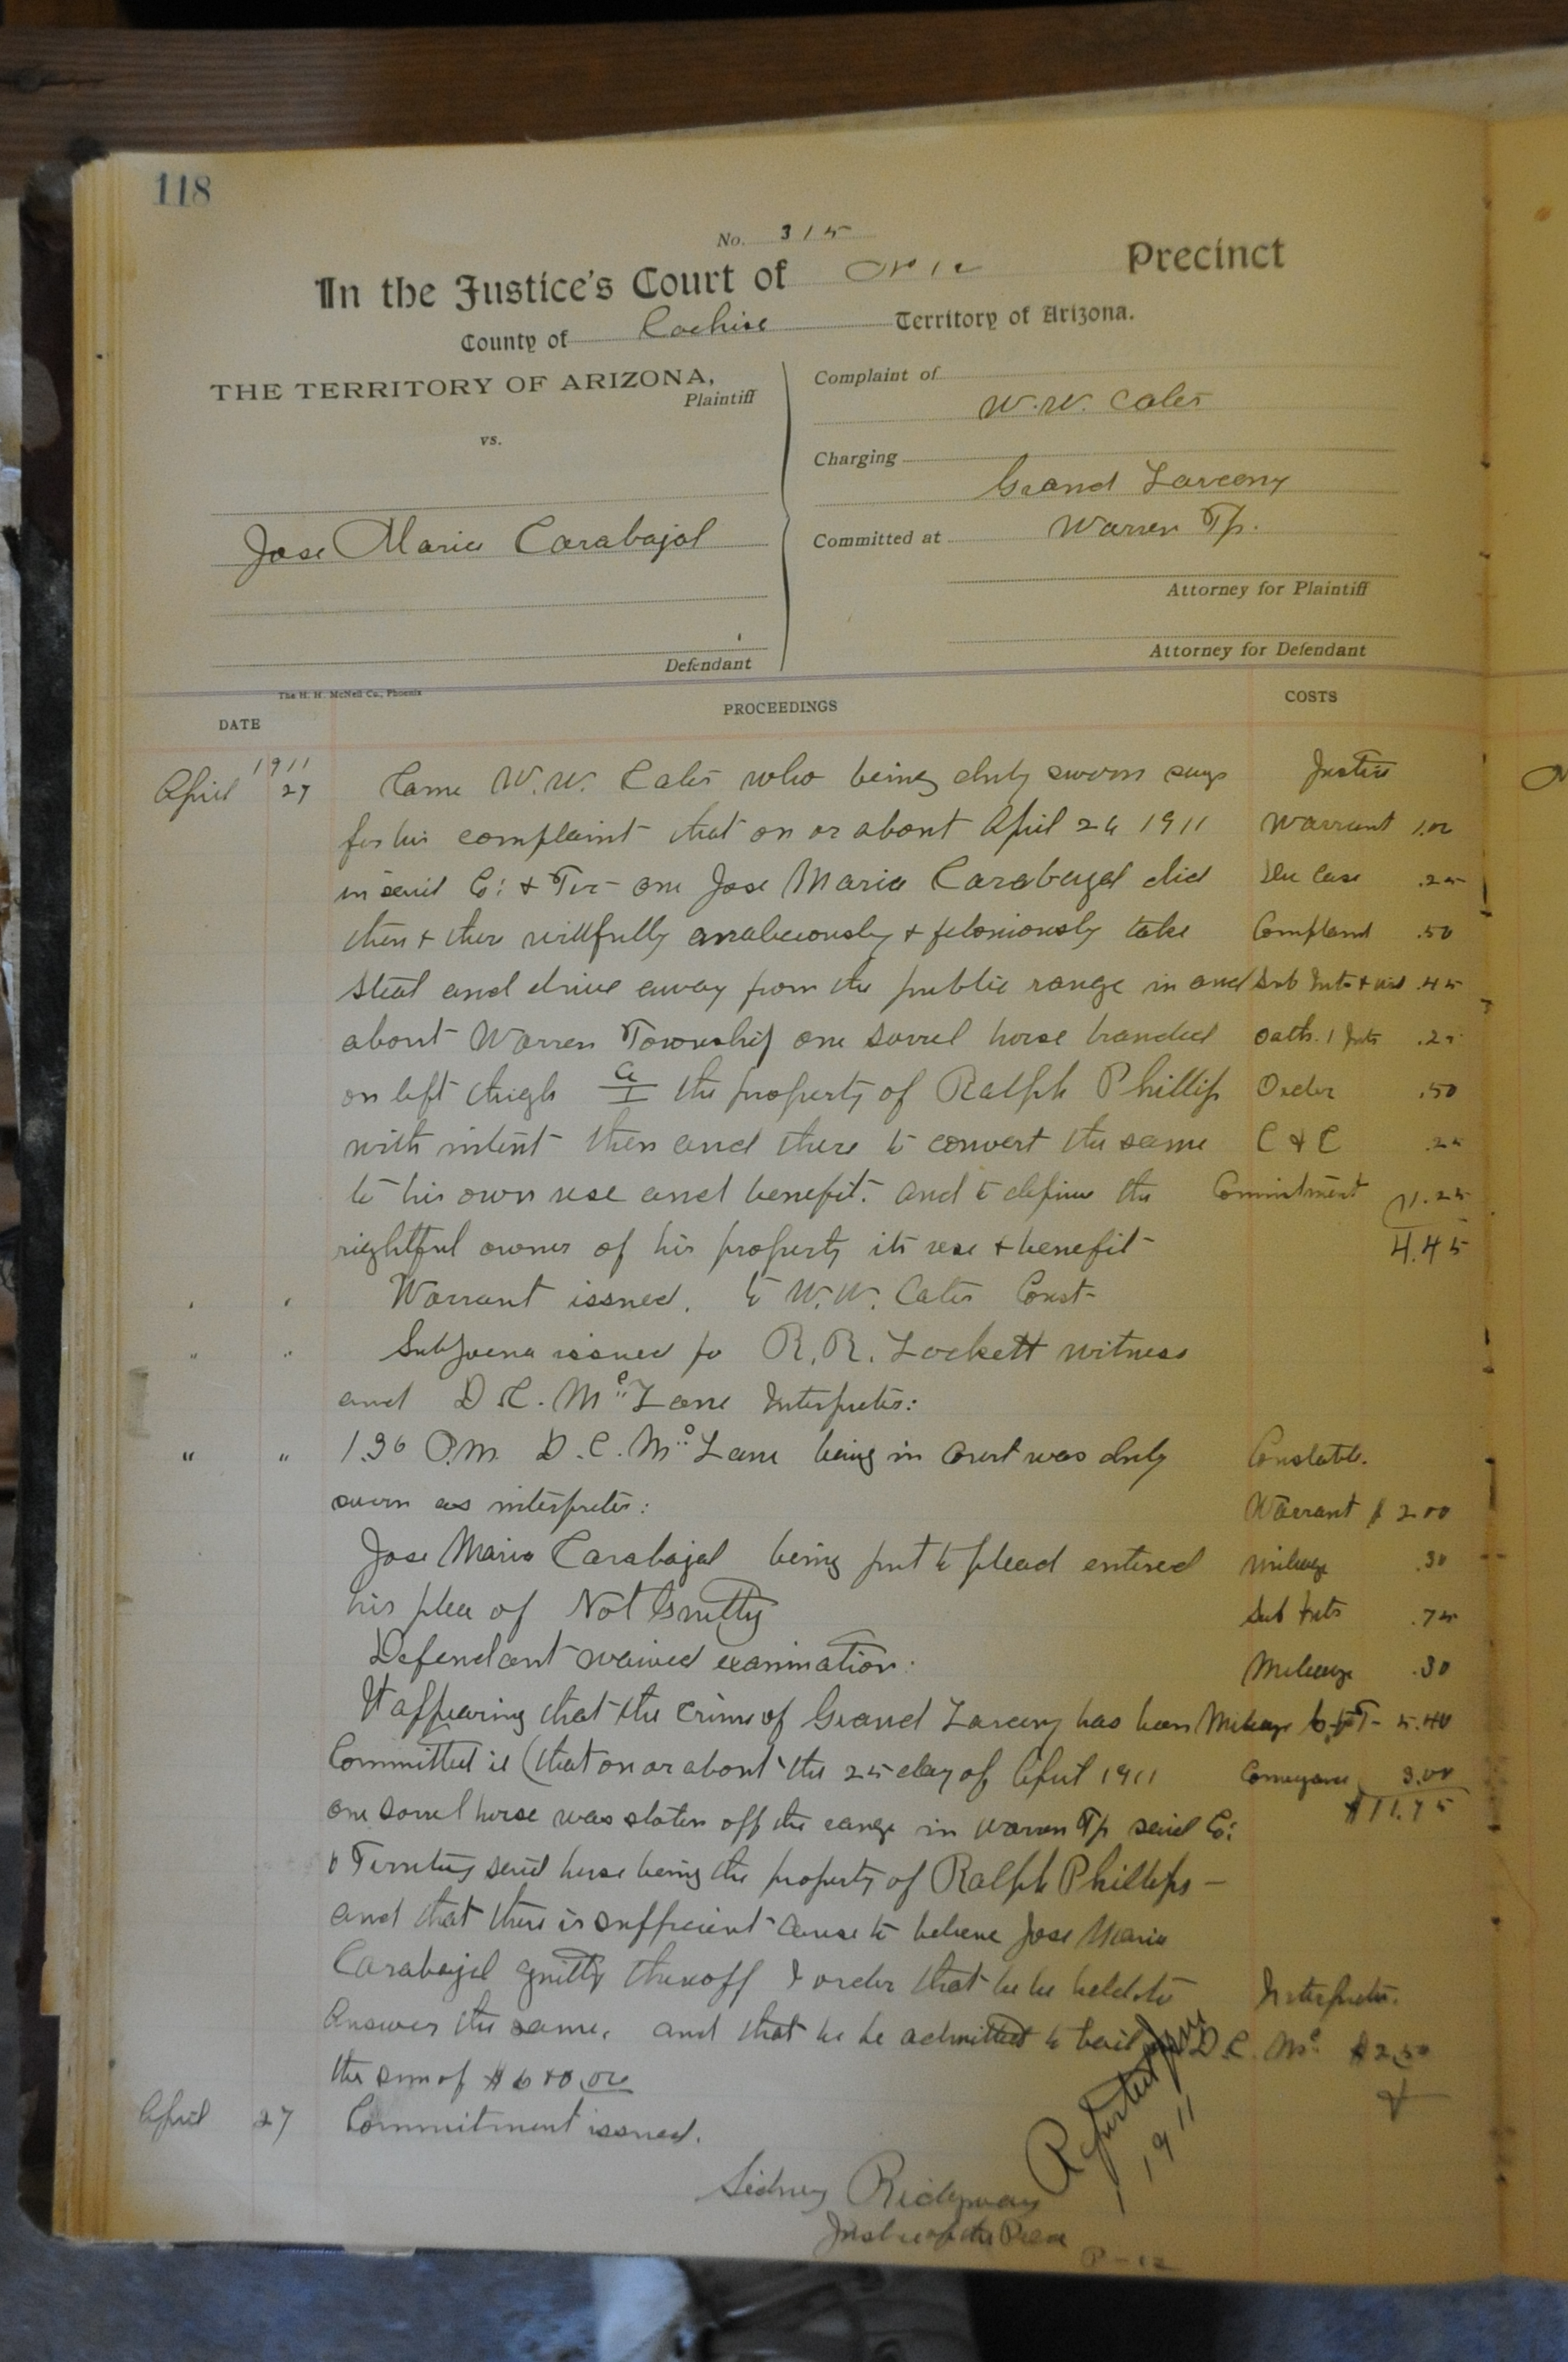 118
No. 315
In the Justice's Court of No 12 Precinct
County of Cochise Territory of Arizona.
THE TERRITORY OF ARIZONA,
Plaintiff
vs.
Jose Maria Carabajal
Defendant
Complaint of
W.W. Cates
Charging
Grand Larceny
Committed at Warren Tp.
Attorney for Plaintiff
Attorney for Defendant
The H. H. McNeil Co., Phoenix
DATE PROCEEDINGS COSTS
1911
April 27 Came W.W. Cates who being duly sworn says Justice
for his complaint that on or about April 26 1911 Warrant 1.00
in said Co: & Ter one Jose Maria Carabajal did Case .25
then & there willfully & feloniously take .50
steal and drive away from the public range in and .45
about Warren Township one sorrel horse branded Oath 1 .25
on left thigh the property of Ralph Phillips Order .50
with intent then and there to convert the same C & C .25
to his own use and benefit. and to the Commitment 1.25
rightful owner of his property its use & benefit 4.45
Warrant issued. to W.W. Cates Const
Subpoena issued for R.R. Lockett witness
and D.C. McLane Interpreter:
" " 1.30 P.M. D.C. McLane being in Court was duly Constable.
sworn as interpreter: Warrant $ 2.00
Jose Maria Carabajal being put to plead entered Mileage .30
his plea of Not Guilty Sub .75
Defendant waived examination. Mileage .30
It appearing that the crime of Grand Larceny has been Mileage 5.40
Committed (that on or about the 25 day of April 1911 Conveyance 3.00
one sorrel horse was stolen off the range in Warren Tp said Co: $11.75
& Territory said horse being the property of Ralph Phillips —
and that there is sufficient cause to believe Jose Maria
Carabajal guilty thereoff I order that he be held to Interpreter.
Answer the same. and that he be admitted to bail D.C. Mc $2.50
the sum of $
April 27 Commitment issued.
Sidney Ridgway
Justice of the Peace
P - 12
Reported
1911